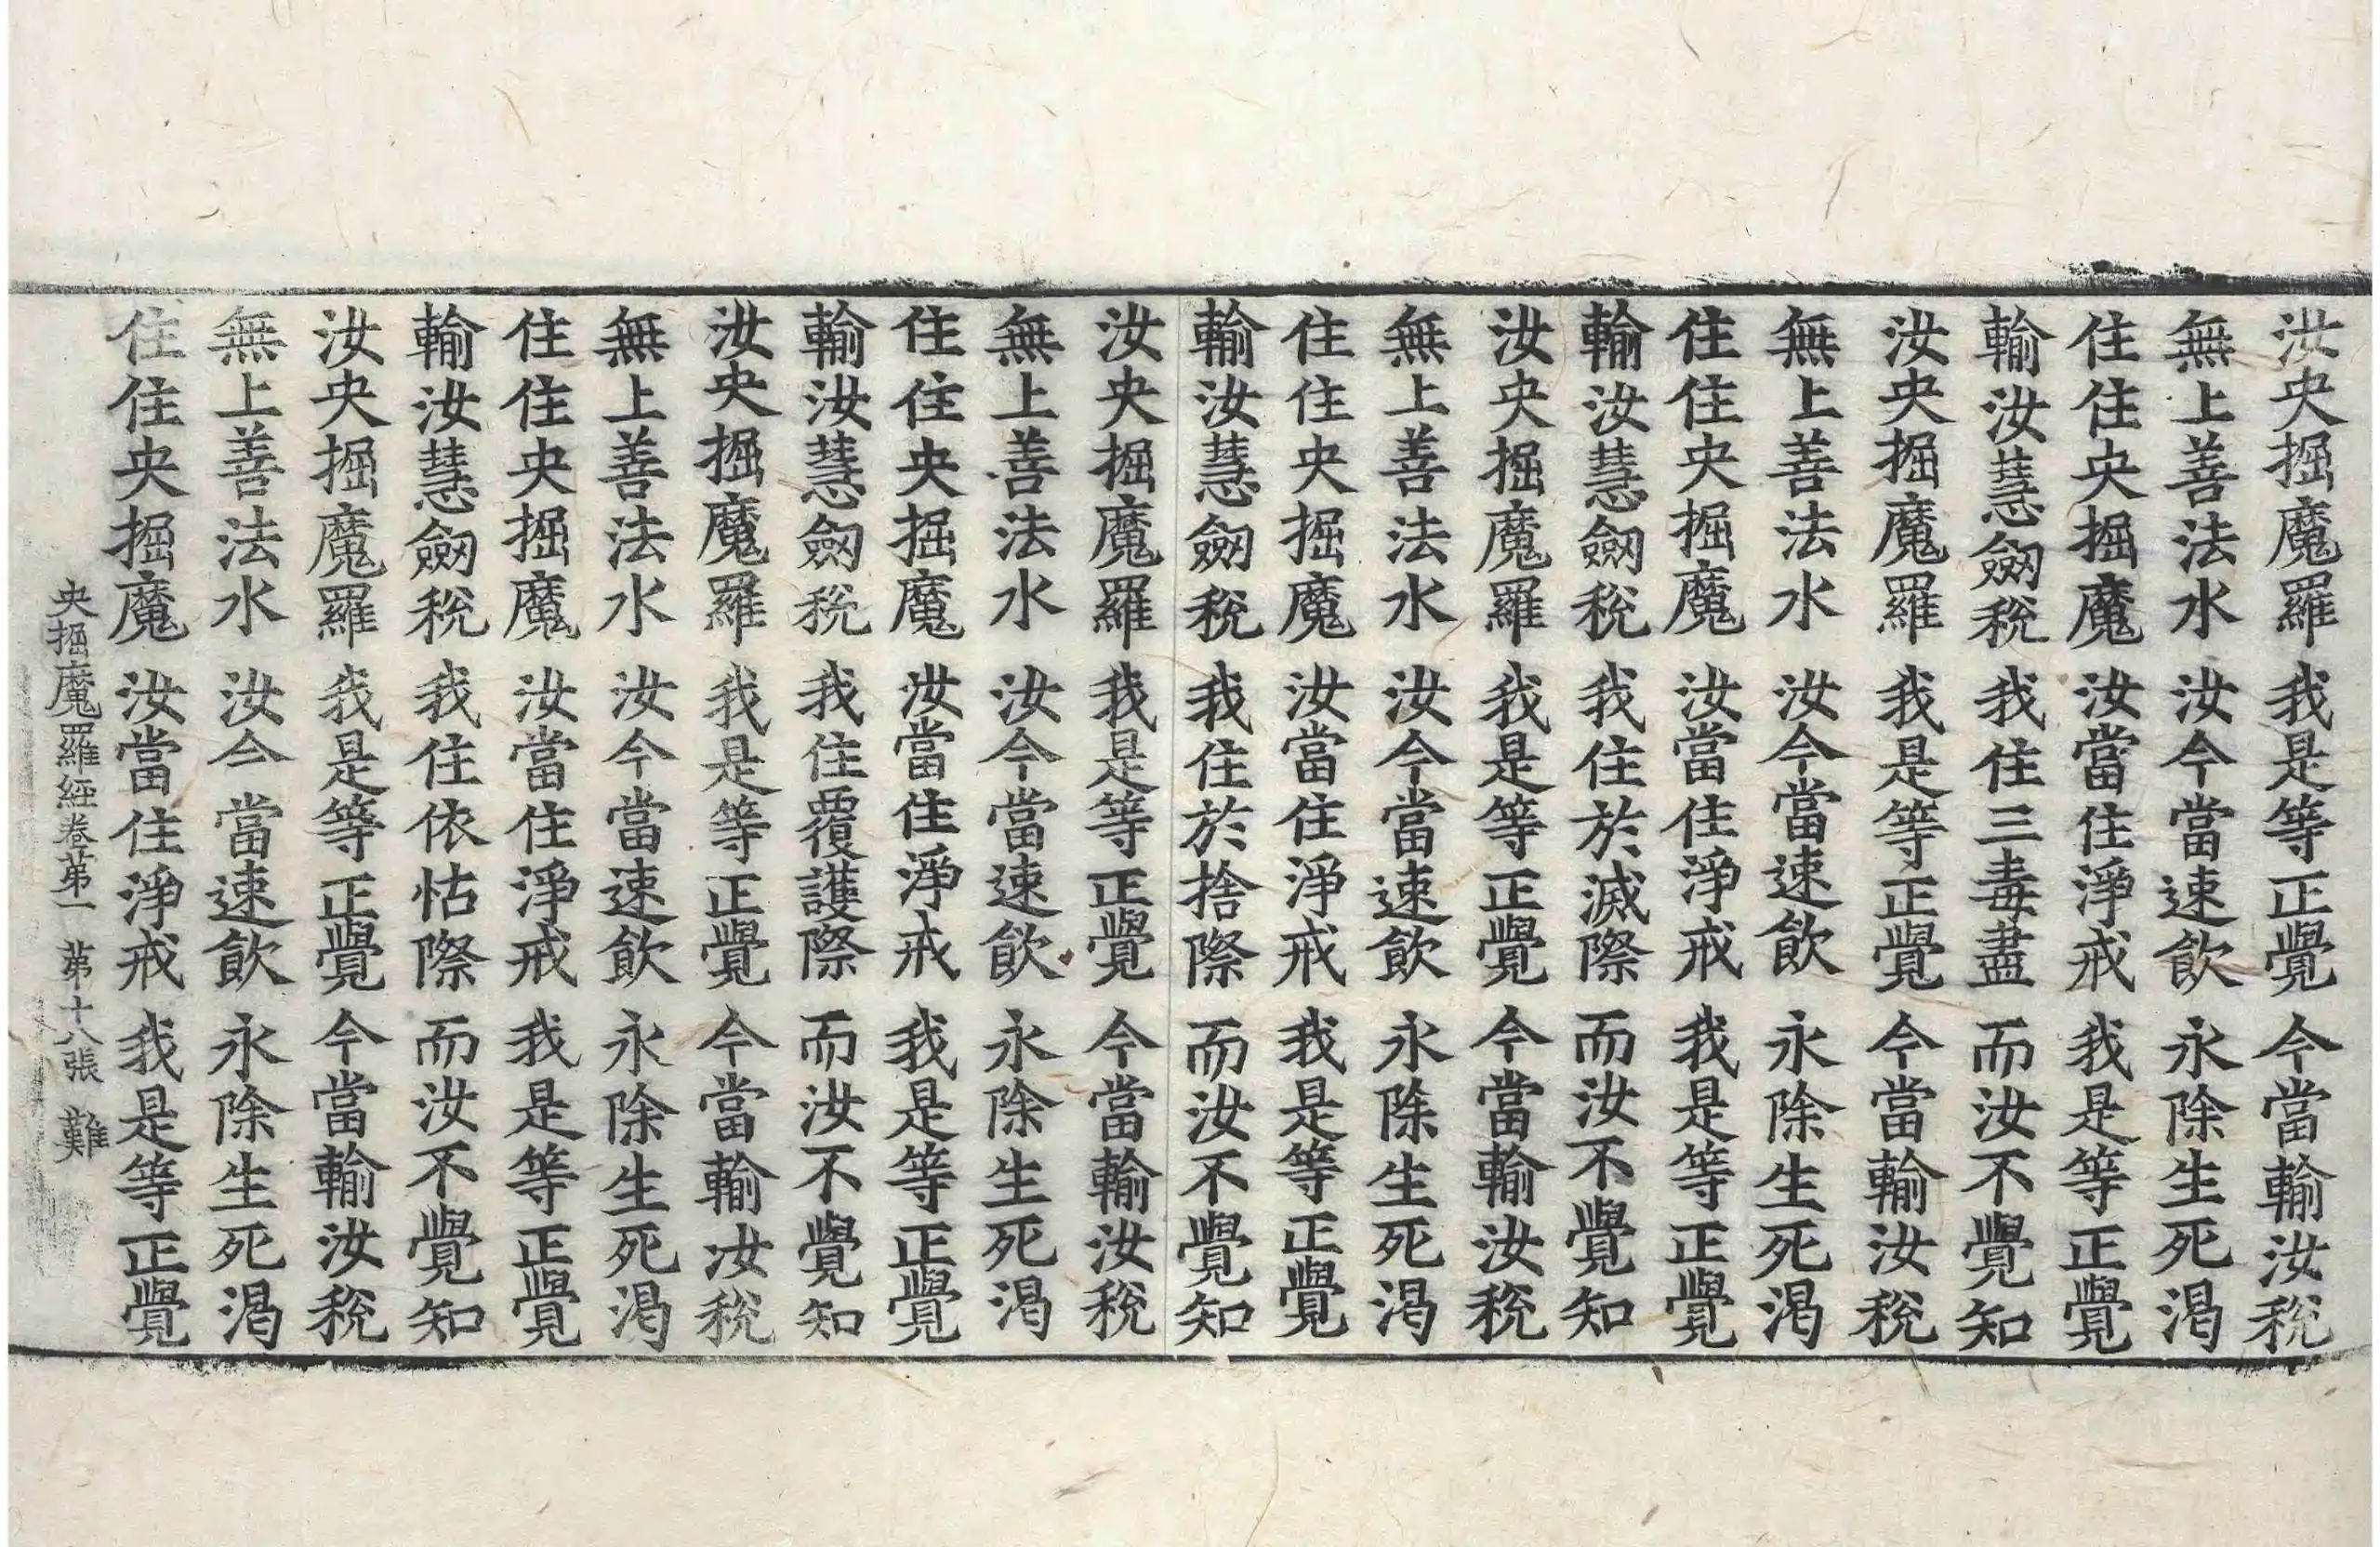 汝央掘魔羅 我是等正覺 今當輸汝稅
無上善法水 汝今當速飲 永除生死渴
住住央掘魔 汝當住淨戒 我是等正覺
輸汝慧劒稅 我住三毒盡 而汝不覺知
汝央掘魔羅 我是等正覺 今當輸汝稅
無上善法水 汝今當速飲 永除生死渴
住住央掘魔 汝當住淨戒 我是等正覺
輸汝慧劒稅 我住於滅際 而汝不覺知
汝央掘魔羅 我是等正覺 今當輸汝稅
無上善法水 汝今當速飲 永除生死渴
住住央掘魔 汝當住淨戒 我是等正覺
輸汝慧劒稅 我住於捨際 而汝不覺知
汝央掘魔羅 我是等正覺 今當輸汝稅
無上善法水 汝今當速飲 永除生死渴
住住央掘魔 汝當住淨戒 我是等正覺
輸汝慧劒稅 我住覆護際 而汝不覺知
汝央掘魔羅 我是等正覺 今當輸汝稅
無上善法水 汝今當速飲 永除生死渴
住住央掘魔 汝當住淨戒 我是等正覺
輸汝慧劒稅 我住依怙際 而汝不覺知
汝央掘魔羅 我是等正覺 今當輸汝稅
無上善法水 汝今當速飲 永除生死渴
住住央掘魔 汝當住淨戒 我是等正覺
央掘魔羅経卷苐一 苐十八張 難